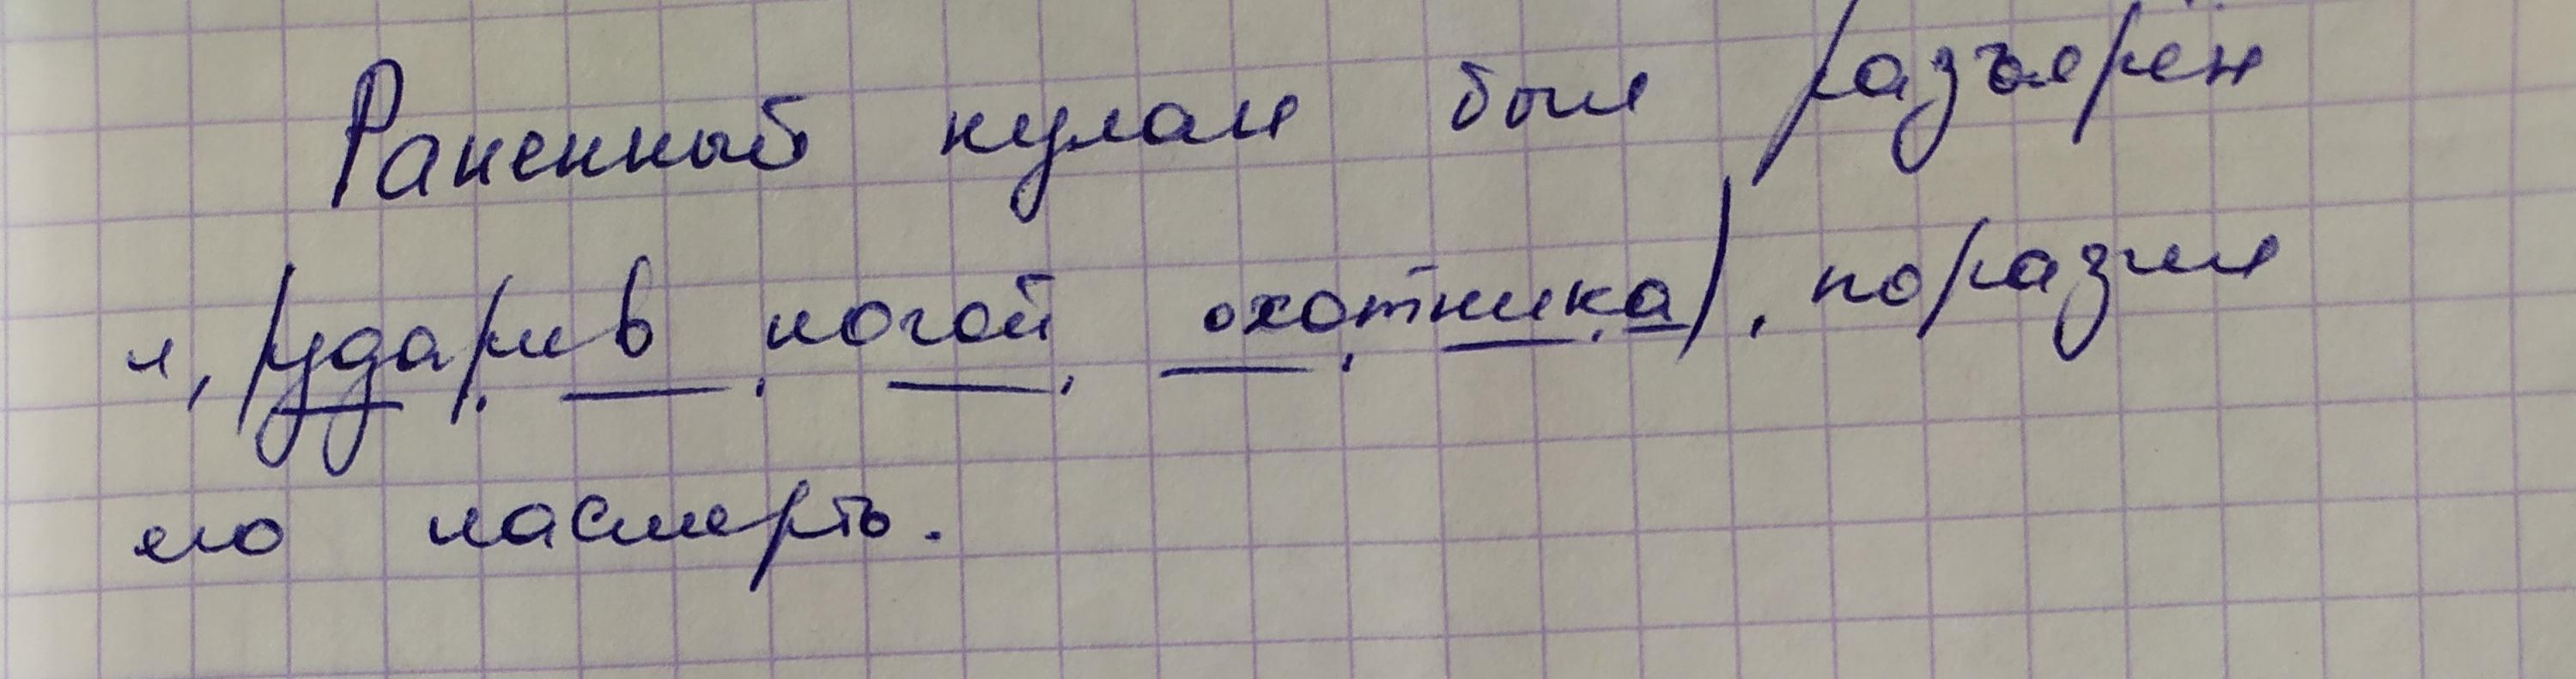 Раненный кулан был разъярён
и, |ударив ногой охотника|, поразил
его насмерть.